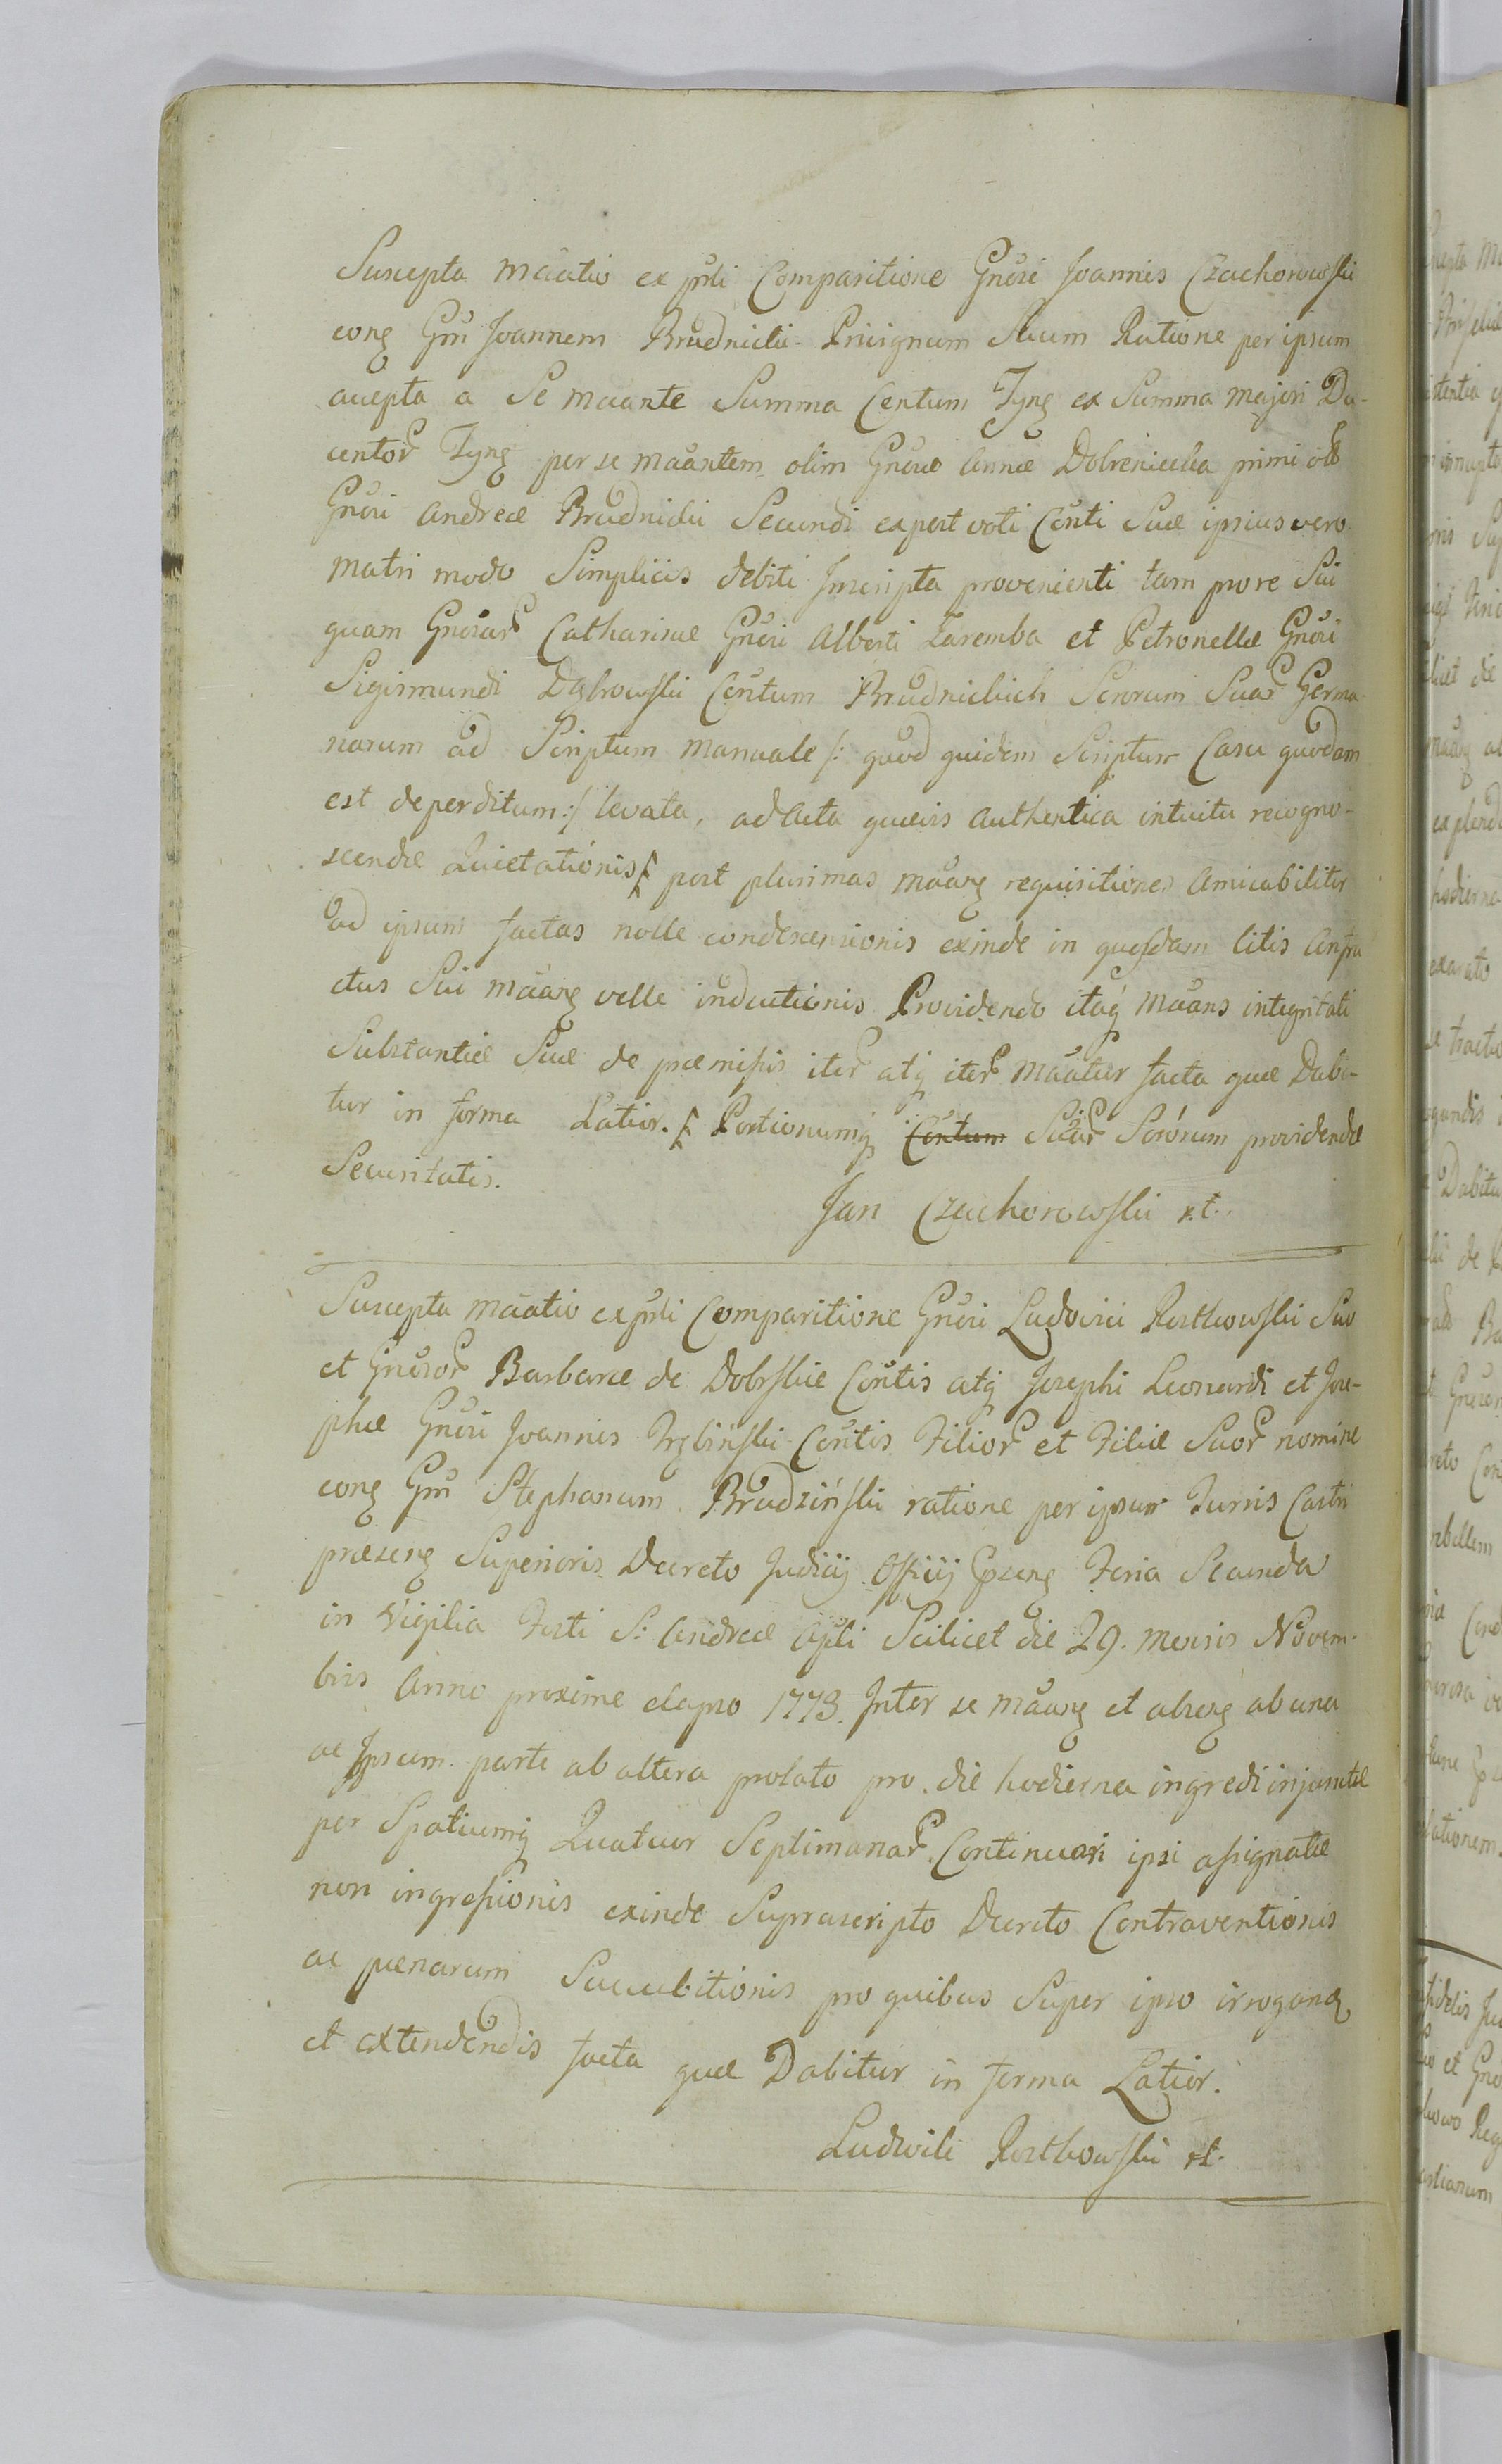 Suscepta mãatio ex pñli Comparitione Gñosi Joannis Czachorowski
cong Gm Joannem Brudnicki Privignum Suum Ratione per ipsum
accepta a Se mãante Summa Centum Tyng ex Summa majori Du-
centor Tyng per se mãantem olim Gnosæ Annæ Dobrenicika primi olim
Gnosi Andreæ Brudnicki Secundi expost voti Cönti Suæ ipsius vero
Matri modo Simplicis debiti Inscripta provenienti tam pro re Sui
quam Gnosar Catharinæ Gnosi Alberti Zaremba et Petronellæ Gnosi
Sigismundi Dąbrowski Cöntum Brudnickich Sororum Suar Germa-
narum ad Scriptum manuale /: quod quidem Scriptum Casu quodam
est deperditum :/ levata, ad Acta quævis Authentica intuitu recogno-
scendæ Quietationis post plurimas mãang requisitiones Amicabiliter
ad ipsum factas nolle condescensionis exinde in quosdam litis Anfra
ctus Sui mãang velle inductionis Providendo itaq mãans integritati
Substantiæ Suæ de præmissis iter atq iter mãatur facta quæ Dabi-
tur in forma Latior. Portionumq Cöntum Suar Sororum providendæ
Securitatis.
Jan Czachorowski rt.
Suscepta mãatio ex pñli Comparitione Gnosi Ludovici Rostkowski Suo
et Gnosor Barbaræ de Dobrskie Cöntis atq Josephi Leonardi et Jose-
phæ Gnosi Joannis Trębiński Cöntis Filior et Filiæ Suor nomine
cong Gm Stephanum Brudziński ratione per ipsum Turris Castri
præseng Superioris Decreto Judicij Officij Cpseng Feria Secunda
in Vigilia Festi S: Andreæ Apli Scilicet die 29. mensis Novem-
bris Anno proxime elapso 1773. Inter se mãang et alseng ab una
ac Ipsum parte ab altera prolato pro die hodierna ingredi injunctæ
per Spatiumq Quatuor Septimanar Continuari ipsi assignatæ
non ingressionis exinde Suprascripto Decreto Contraventionis
ac pænarum Succubitionis pro quibus Super ipso irrogang
et extendendis facta quæ Dabitur in forma Latior.
Ludwik Rostkowski rt.